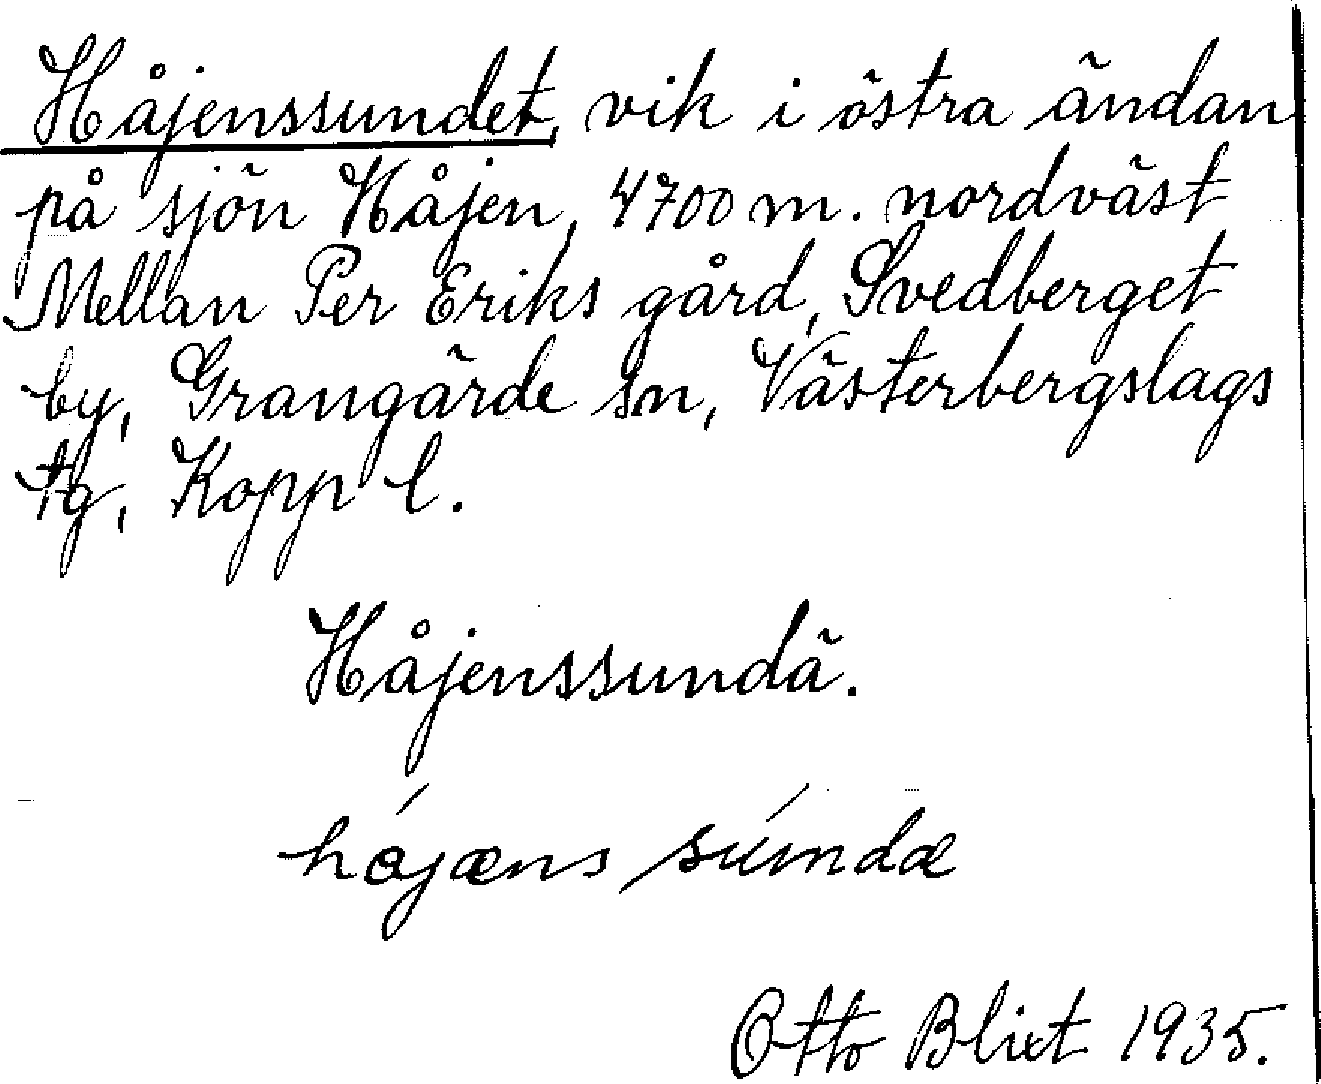 Håjenssundet, vik i östra ändan
på sjön Håjen, 4700 m. nordväst
Mellan Per Eriks gård, Svedberget
by, Grangärde sn, Västerbergslags
tg, Kopp l.
Håjenssundä.
håjæns súndæ
Otto Blixt 1935.